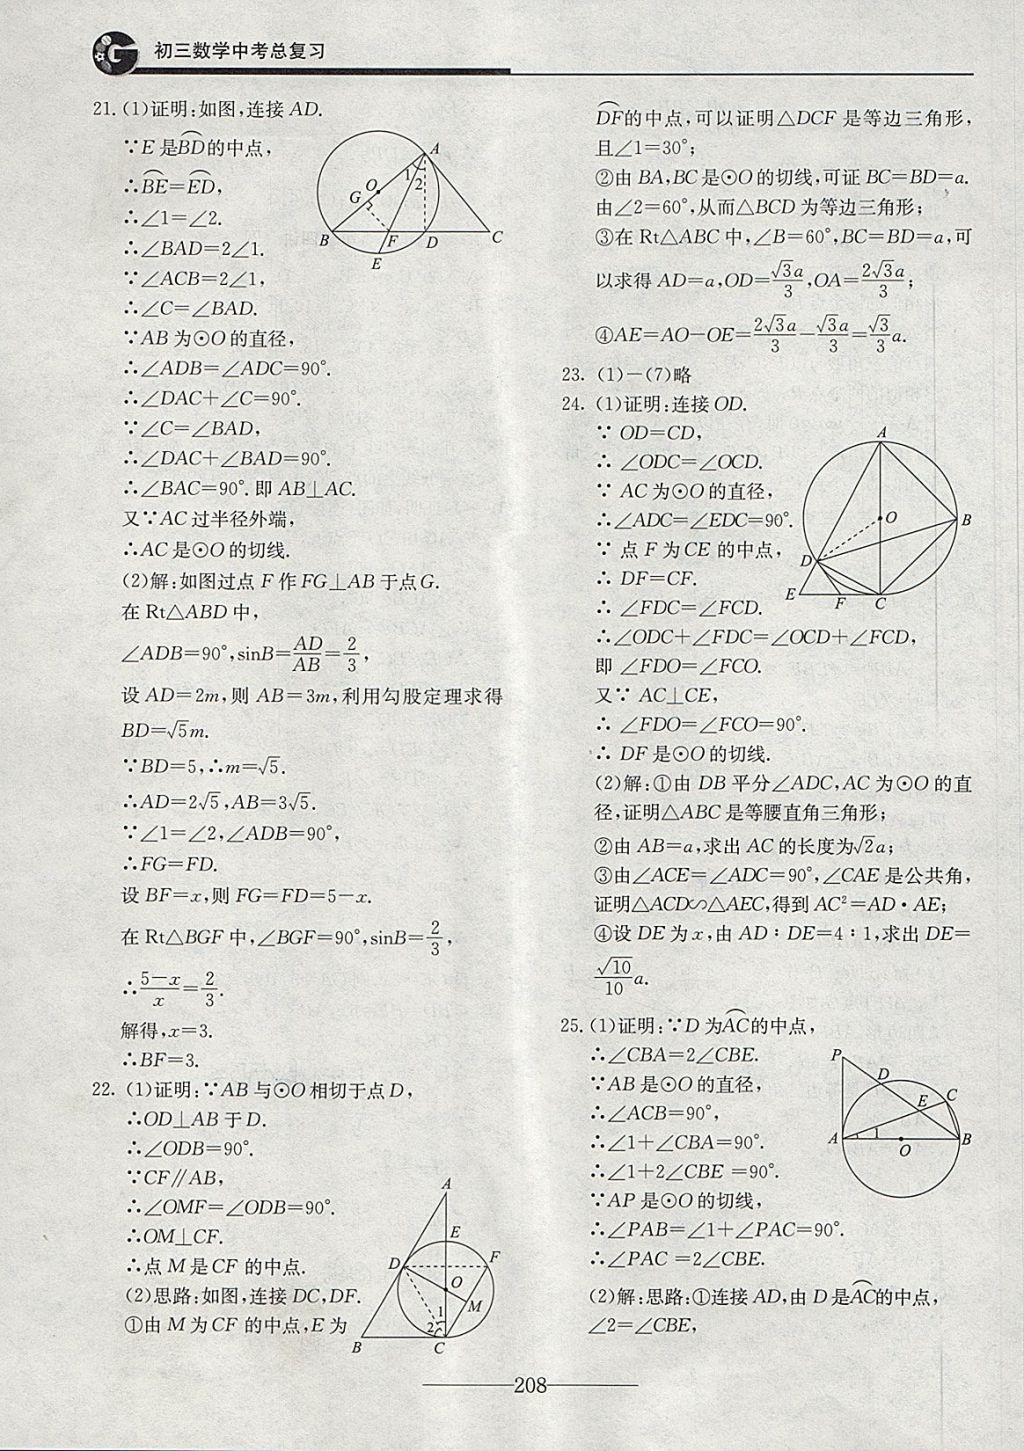 初三数学中考总复习
21. (1)证明:如图,连接 AD.
∵E 是B͡D的中点,
∴B͡E=E͡D,
∴∠1=∠2.
∴∠BAD=2∠1.
∵∠ACB=2∠1,
∴∠C=∠BAD.
∵AB 为⊙O 的直径,
∴∠ADB=∠ADC=90°.
∴∠DAC+∠C=90°.
∵∠C=∠BAD,
∴∠DAC+∠BAD=90°.
∴∠BAC=90°. 即 AB⊥AC.
又∵AC 过半径外端,
∴AC 是⊙O 的切线.
(2)解:如图过点 F 作 FG⊥AB 于点G.
在 Rt△ABD 中,
∠ADB=90°,sinB=AD/AB=2/3,
设 AD=2m,则 AB=3m,利用勾股定理求得
BD=√5m.
∵BD=5,∴m=√5.
∴AD=2√5,AB=3√5.
∵∠1=∠2,∠ADB=90°,
∴FG=FD.
设 BF=x,则 FG=FD=5-x.
在 Rt△BGF 中,∠BGF=90°,sinB=2/3,
∴(5-x)/x=2/3.
解得,x=3.
∴BF=3.
A
1
2
O
G
B
F
D
C
E
22. (1)证明:∵AB 与⊙O 相切于点 D,
∴OD⊥AB 于 D.
∴∠ODB=90°.
∵CF∥AB,
∴∠OMF=∠ODB=90°.
∴OM⊥CF.
∴点 M 是 CF 的中点.
(2)思路:如图,连接 DC,DF.
①由 M 为 CF 的中点,E 为
A
E
D
F
O
M
1
2
B
C
D͡F的中点,可以证明△DCF 是等边三角形,
且∠1=30°;
②由 BA,BC 是⊙O 的切线,可证 BC=BD=a.
由∠2=60°,从而△BCD 为等边三角形;
③在 Rt△ABC 中,∠B=60°,BC=BD=a,可
以求得 AD=a,OD=√3a/3,OA=2√3a/3;
④AE=AO-OE=2√3a/3-√3a/3=√3/3a.
23. (1)-(7)略
24. (1)证明:连接 OD.
∵ OD=CD,
∴ ∠ODC=∠OCD.
∵ AC 为⊙O 的直径,
∴∠ADC=∠EDC=90°.
∵ 点 F 为 CE 的中点,
∴ DF=CF.
∴ ∠FDC=∠FCD.
∴∠ODC+∠FDC=∠OCD+∠FCD,
即 ∠FDO=∠FCO.
又∵ AC⊥CE,
∴ ∠FDO=∠FCO=90°.
∴ DF 是⊙O 的切线.
(2)解:①由 DB 平分∠ADC,AC 为⊙O 的直
径,证明△ABC 是等腰直角三角形;
②由 AB=a,求出 AC 的长度为√2a;
③由∠ACE=∠ADC=90°,∠CAE 是公共角,
证明△ACD∽△AEC,得到 AC²=AD·AE;
④设 DE 为 x,由 AD∶DE=4∶1,求出 DE=
√10/10a.
A
O
B
D
E
F
C
25. (1)证明:∵D 为A͡C的中点,
∴∠CBA=2∠CBE.
∵AB 是⊙O 的直径,
∴∠ACB=90°,
∴∠1+∠CBA=90°.
∴∠1+2∠CBE =90°.
∵AP 是⊙O 的切线,
∴∠PAB=∠1+∠PAC=90°.
∴∠PAC =2∠CBE.
(2)解:思路:①连接 AD,由 D 是A͡C的中点,
∠2=∠CBE,
P
D
E
C
A
1
O
B
208